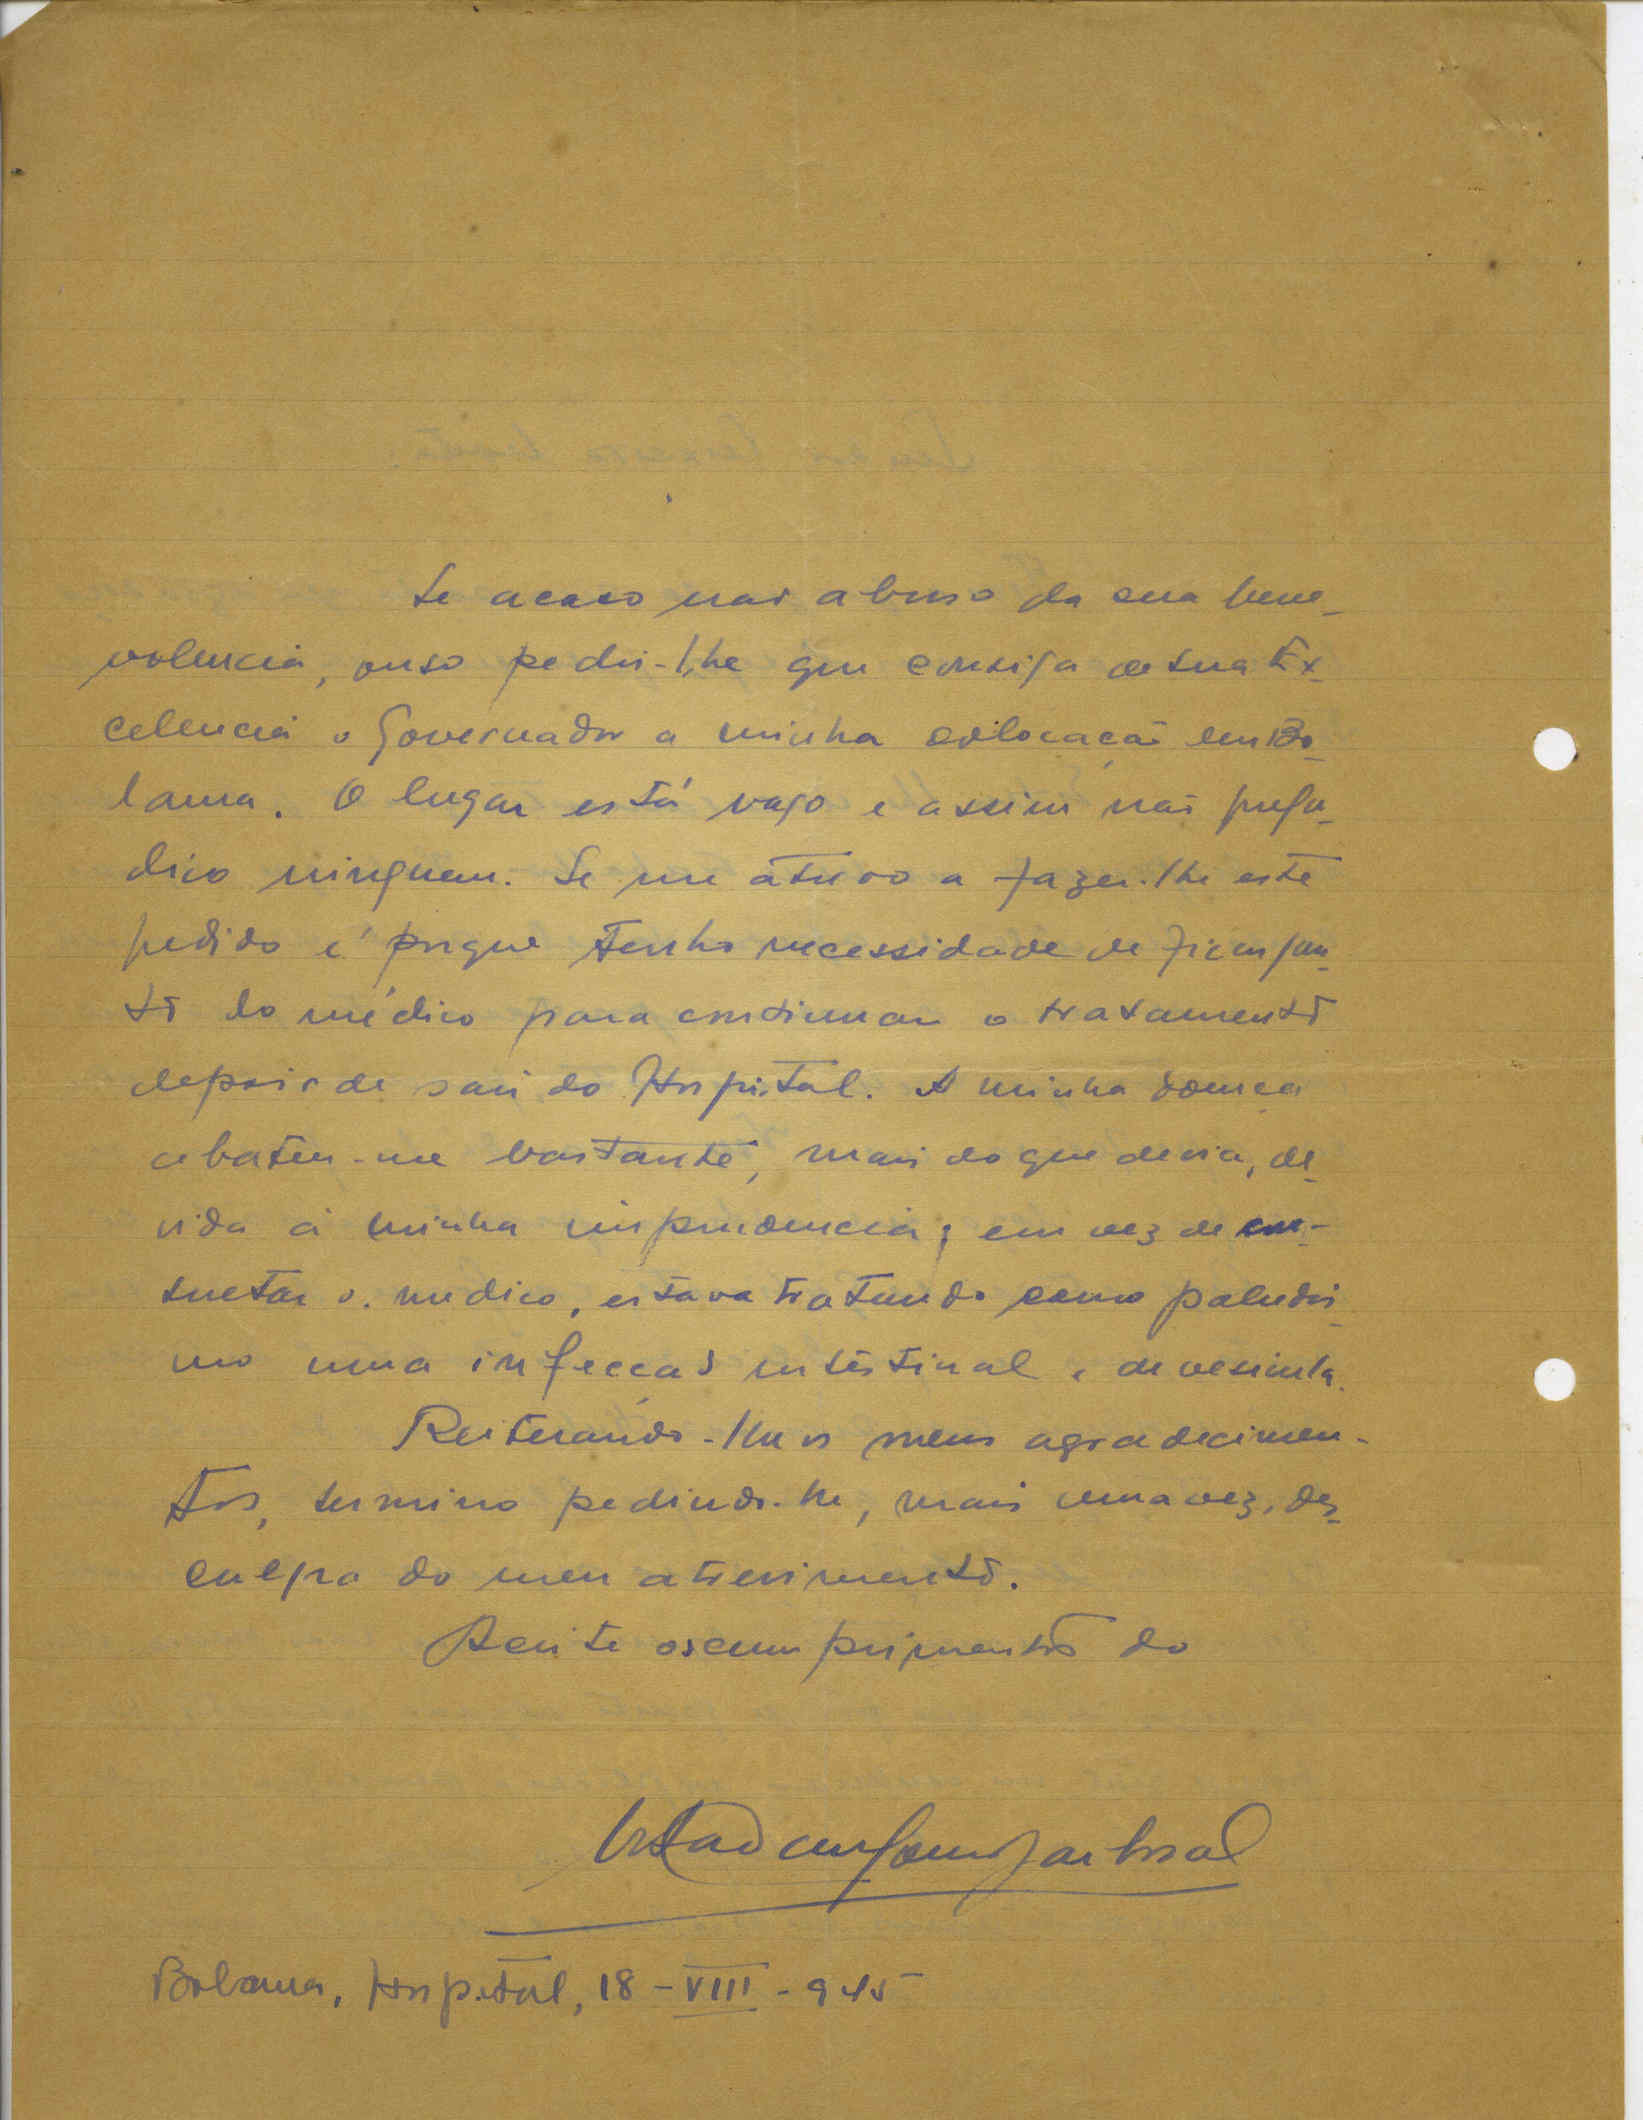 Se acaso não abuso da sua bene-
volencia, ouso pedir-lhe que consiga de sua Ex-
celencia o Governador a minha colocação em Bo-
lama. O lugar está vago e assim não preju-
dico ninguem. Se me atrevo a fazer-lhe este
pedido é porque tenho necessidade de ficar jun-
to do médico para continuar o tratamento
depois de sair do Hospital. A minha doença
abateu-me bastante, mais do que devia, de-
vida á minha imprudencia; em vez de con-
sultar o medico, estava tratando como paludis-
mo uma infecção intestinal e de vesicula.
Reiterando-lhe os meus agradecimen-
tos, termino pedindo-lhe, mais uma vez, des-
culpa do meu atrevimento.
Aceite os cumprimentos do
Bolama, Hospital, 18-VIII-945